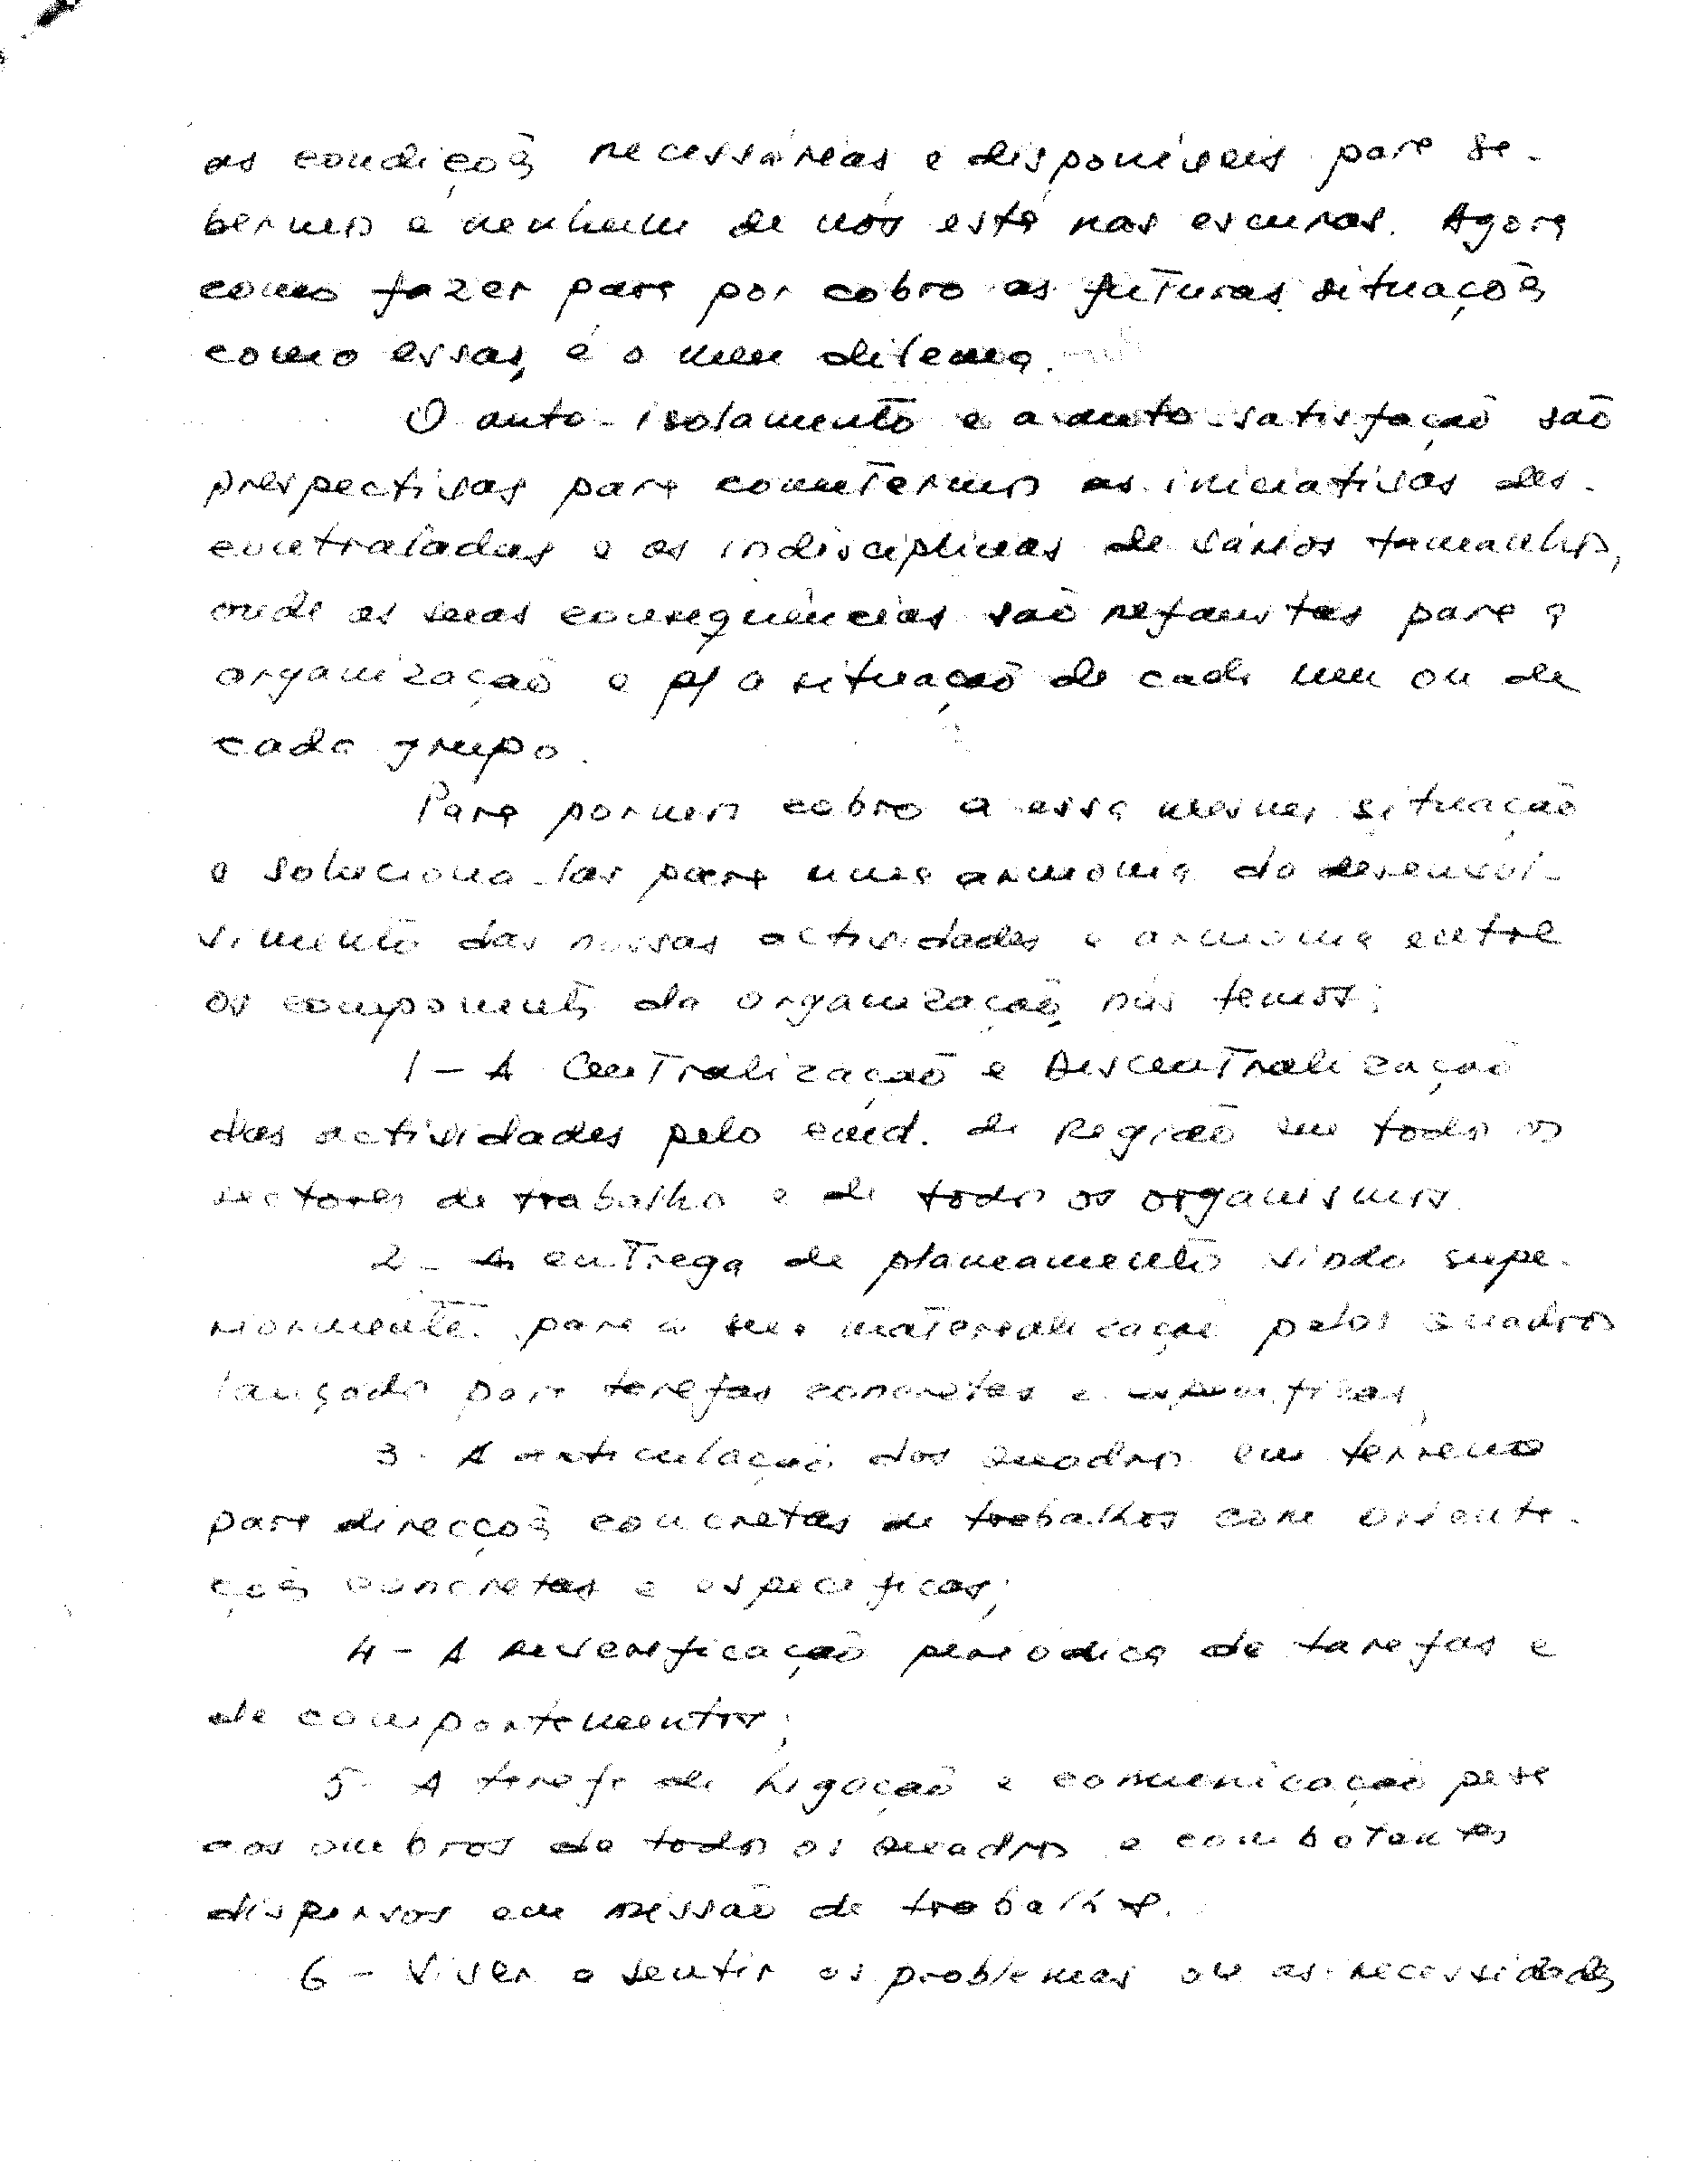 as condições necessárias e disponíveis para sa-
bermos e nenhum de nós está nas escuras. Agora
como fazer para por cobro as futuras situações
como essas, é o meu dilema.
O auto-isolamento e a auto-satisfação são
prespectivas para cometermos as iniciativas des-
contraladas e as indisciplinas de vários tamanhos,
onde as suas consequências são nefastas para a
organização e p/ a situação de cada um ou de
cada grupo.
Para pormos cobro a essa mesma situação
e soluciona-las para uma armonia do desenvol-
vimento das nossas actividades e armonia entre
os componentes da organização, nós temos:
1- A Centralização e Descentralização
das actividades pelo cmd. da Região em todos os
sectores de trabalho e de todos os organismos.
2- A entrega de planeamento vindo supe-
riormente para a sua materealização pelos quadros
lançados para tarefas concretas e especificas,
3- A articulação dos quadros em terreno
para direcções concretas de trabalhos com orienta-
ções concretas e especificas;
4- A reverificação periodica de tarefas e
de comportamentos;
5- A tarefa de ligação e comunicação pesa
aos ombros de todos os quadros e combatentes
dispersos em missão de trabalho.
6- Viver e sentir os problemas ou as necessidades